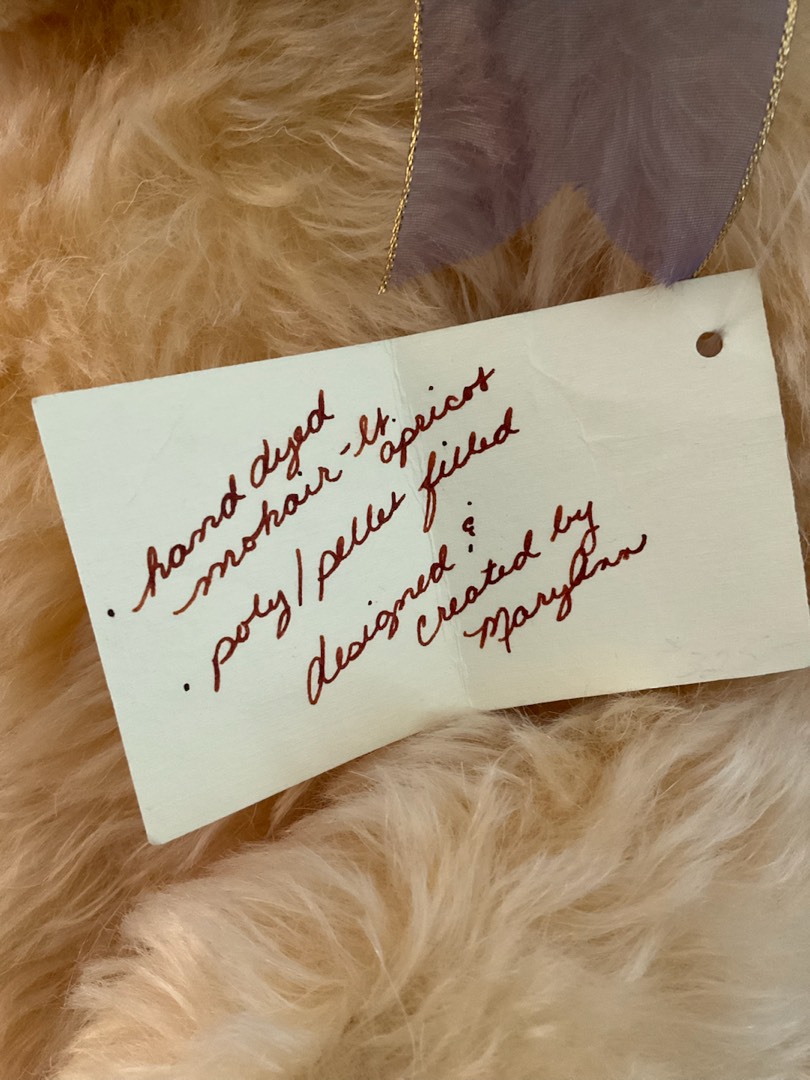 . hand dyed
mohair - lt.
apricot
. poly/pellet filled
designed &
created by
MaryAnn